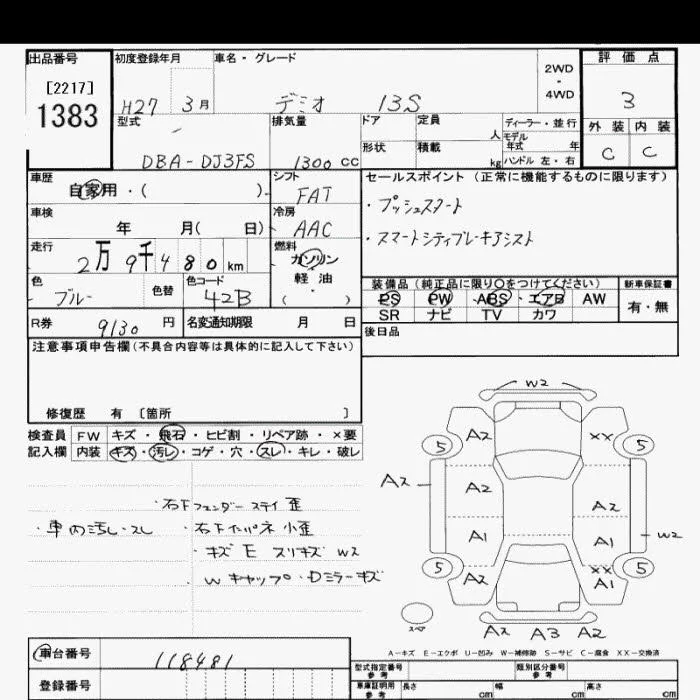 出品番号 初度登録年月 車名・グレード 2WD・4WD 評価点
[2217]
1383
H27 3月 デミオ 13S 3
型式 排気量 ドア 定員 人 ディーラー・並行 外装 内装
モデル年式 年
DBA-DJ3FS 1300cc 形状 積載 kg ハンドル 左・右 C C
車歴 自家用・( ) シフト FAT セールスポイント (正常に機能するものに限ります)
車検 年 月( 日) 冷房 AAC ・プッシュスタート
走行 2万9千480km 燃料 ガソリン・軽油・( ) ・スマートシティブレーキアシスト
色 ブルー 色替 色コード 42B
装備品(純正品に限り○をつけてください) 新車保証書
PS PW ABS・エアB AW 有・無
SR ナビ TV カワ
R券 9130円 名変通知期限 月 日 後日品
注意事項申告欄(不具合内容等は具体的に記入して下さい)
修復歴 有 [箇所 ]
検査員 FW キズ・飛石・ヒビ割・リペア跡・×要
記入欄 内装 キズ・汚レ・コゲ・穴・スレ・キレ・破レ
・右Fフェンダーステイ歪
・車内汚レ・スレ ・右Fインパネ小歪
・キズE スリキズ W2
・Wキャップ・Dミラーキズ
W2
A2 XX
5 5
A2 A2
A2
A1 A1 W2
XX
5 A2 A1 5
スペア A2 A3 A2
A-キズ E-エクボ U-凹み W-補修跡 S-サビ C-腐食 XX-交換済
車台番号 118481
型式指定番号 参考 類別区分番号 参考
登録番号 車庫証明用 参考 長さ cm 幅 cm 高さ cm